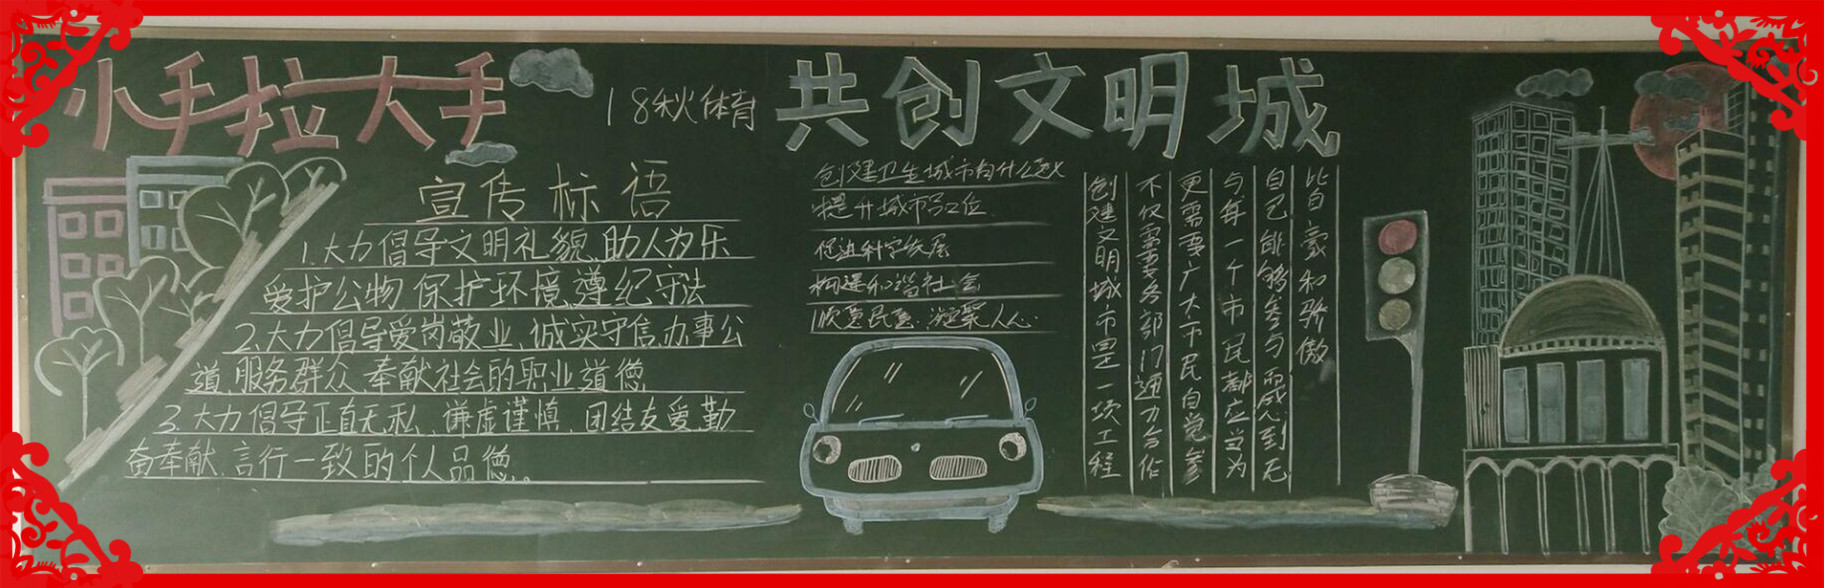 小手拉大手
18秋体育
共创文明城
宣传标语
1.大力倡导文明礼貌、助人为乐
爱护公物、保护环境、遵纪守法
2.大力倡导爱岗敬业、诚实守信、办事公
道、服务群众、奉献社会的职业道德
3.大力倡导正直无私、谦虚谨慎、团结友爱、勤
奋奉献、言行一致的个人品德。
创建卫生城市有什么意义
提升城市品位
促进科学发展
和谐社会
民意.凝聚人心.
创建文明城市是一项工程
不仅需要各部门通力合作
更需要广大市民自觉参
与每一个市民都应当为
自己能够参与而感到无
比自豪和骄傲